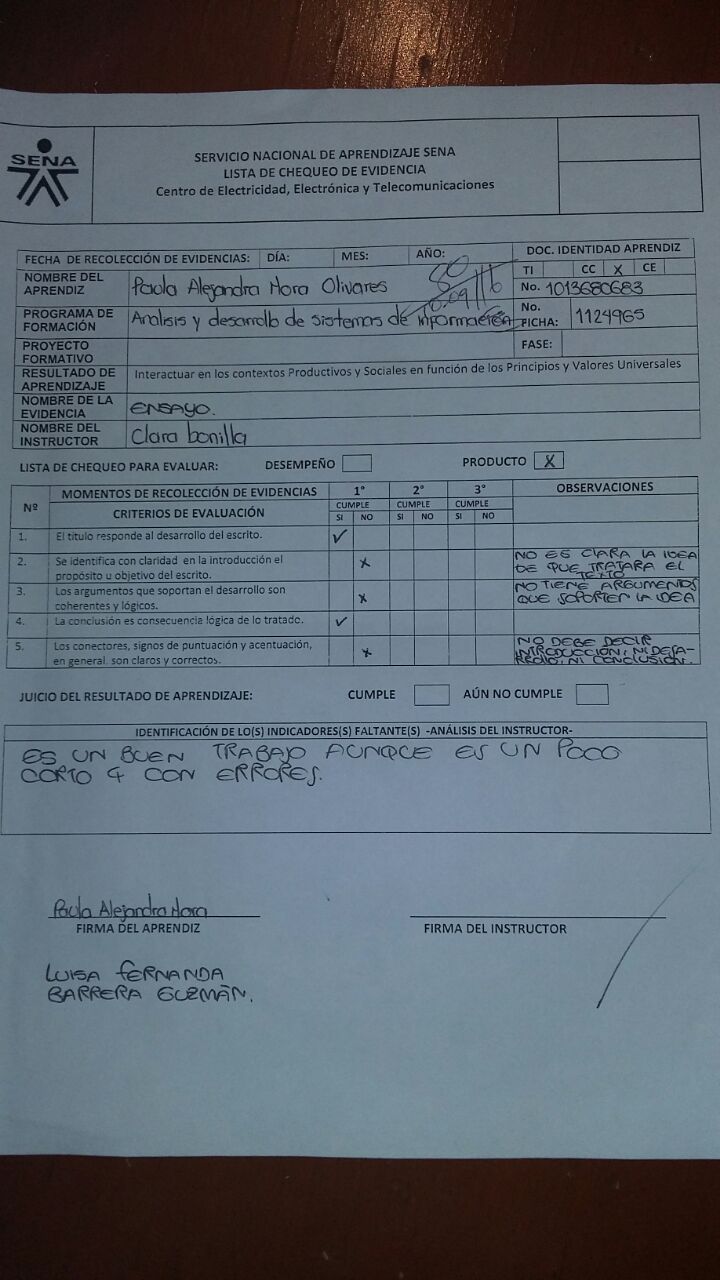 SENA
SERVICIO NACIONAL DE APRENDIZAJE SENA
LISTA DE CHEQUEO DE EVIDENCIA
Centro de Electricidad, Electrónica y Telecomunicaciones
FECHA DE RECOLECCIÓN DE EVIDENCIAS: DÍA: MES: AÑO: DOC. IDENTIDAD APRENDIZ
TI CC X CE
NOMBRE DEL APRENDIZ Paola Alejandra Mora Olivares No. 1013680683
80
PROGRAMA DE FORMACIÓN Analisis y desarrollo de sistemas de información No. FICHA: 1124965
PROYECTO FORMATIVO FASE:
RESULTADO DE APRENDIZAJE Interactuar en los contextos Productivos y Sociales en función de los Principios y Valores Universales
NOMBRE DE LA EVIDENCIA ENSAYO.
NOMBRE DEL INSTRUCTOR Clara bonilla
LISTA DE CHEQUEO PARA EVALUAR: DESEMPEÑO PRODUCTO X
Nº MOMENTOS DE RECOLECCIÓN DE EVIDENCIAS 1° 2° 3° OBSERVACIONES
CRITERIOS DE EVALUACIÓN CUMPLE CUMPLE CUMPLE
SI NO SI NO SI NO
1. El titulo responde al desarrollo del escrito. ✓
2. Se identifica con claridad en la introducción el propósito u objetivo del escrito. x NO ES CLARA LA IDEA DE QUE TRATARA EL TEXTO
3. Los argumentos que soportan el desarrollo son coherentes y lógicos. x NO TIENE ARGUMENTOS QUE SOPORTEN LA IDEA
4. La conclusión es consecuencia lógica de lo tratado. ✓
5. Los conectores, signos de puntuación y acentuación, en general. son claros y correctos. x NO DEBE DECIR INTRODUCCIÓN, NI DESARROLLO, NI CONCLUSIÓN.
JUICIO DEL RESULTADO DE APRENDIZAJE: CUMPLE AÚN NO CUMPLE
IDENTIFICACIÓN DE LO(S) INDICADORES(S) FALTANTE(S) -ANÁLISIS DEL INSTRUCTOR-
ES UN BUEN TRABAJO AUNQUE ES UN POCO
CORTO Y CON ERRORES.
Paola Alejandra Mora
FIRMA DEL APRENDIZ FIRMA DEL INSTRUCTOR
LUISA FERNANDA
BARRERA GUZMÁN.